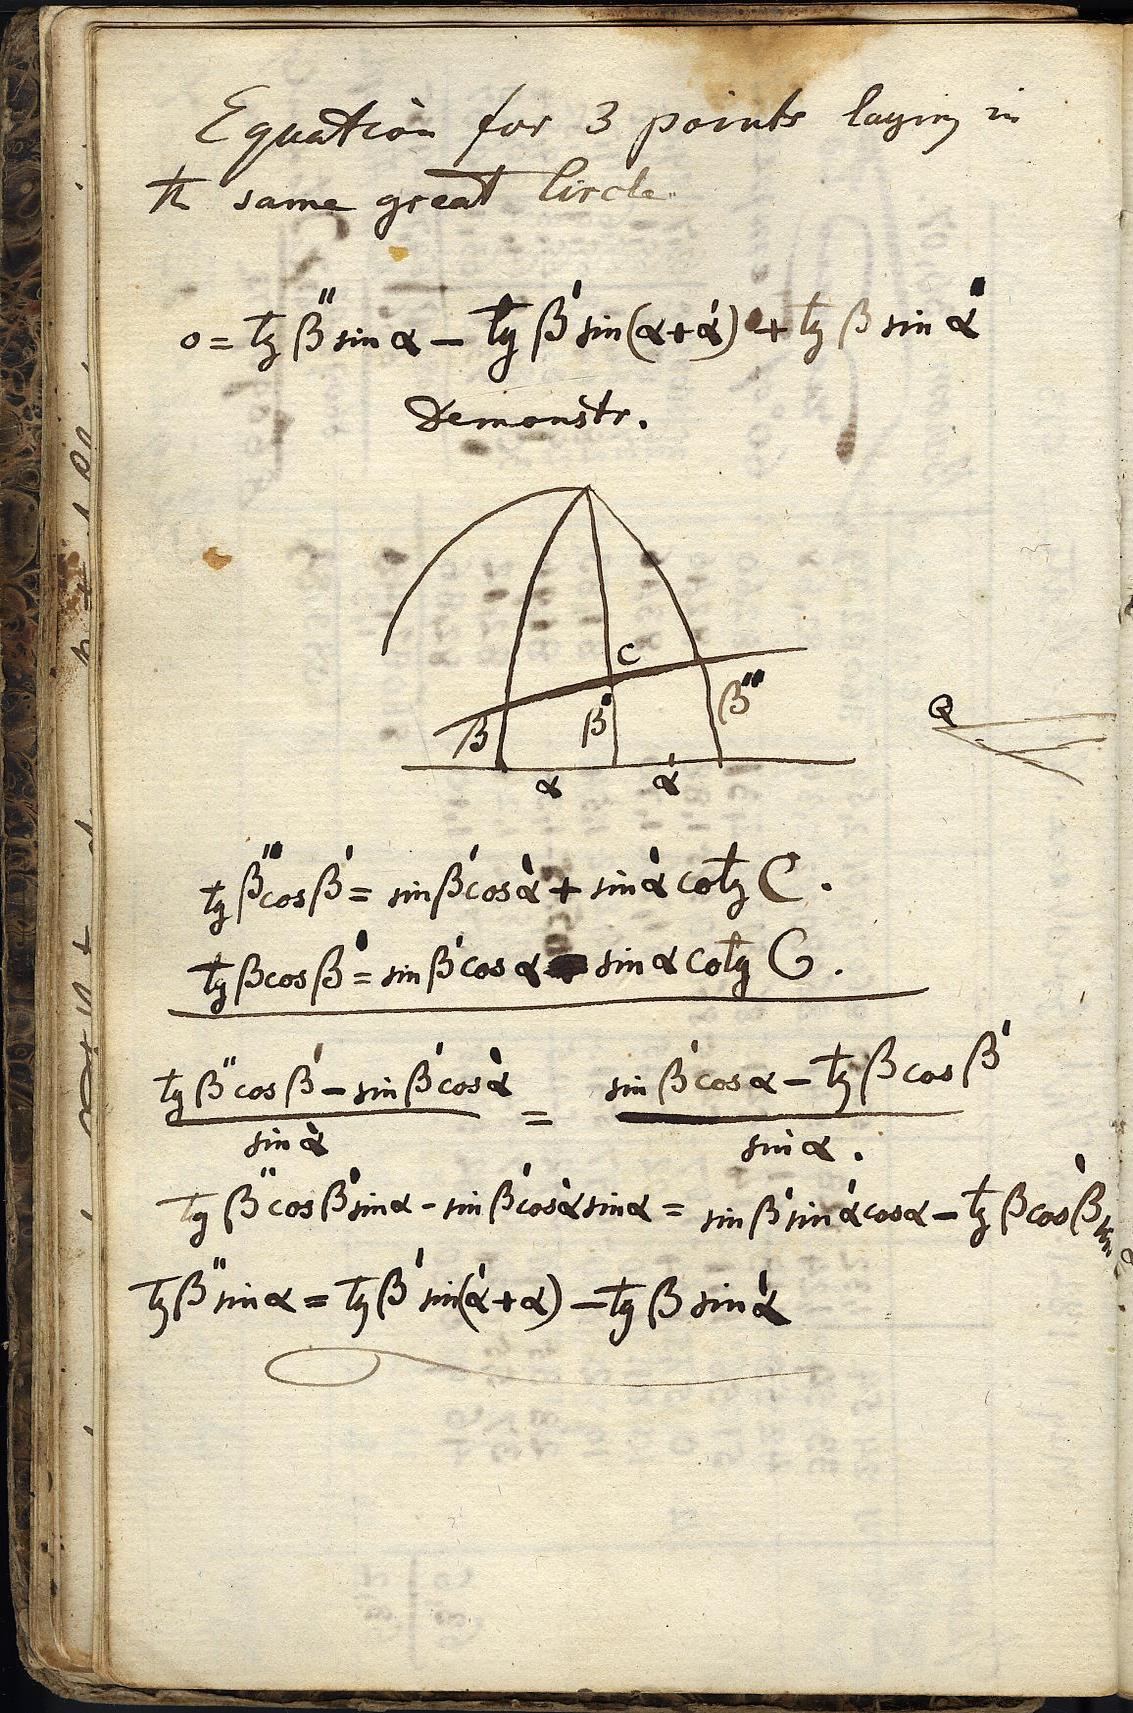 Equation for 3 points laying in
th same great Circle
0 = tg β'' sin α — tg β' sin(α+α') + tg β sin α'
Demonstr.
C
β β' β''
α α'
Q
tg β'' cos β' = sin β' cos α' + sin α' cotg C.
tg β cos β' = sin β' cos α - sin α cotg C.
tg β'' cos β' — sin β' cos α' = sin β' cos α — tg β cos β'
sin α' sin α.
tg β'' cos β' sin α - sin β' cos α' sin α = sin β' sin α' cos α — tg β cos β' sin α
tg β'' sin α = tg β' sin(α' + α) — tg β sin α'